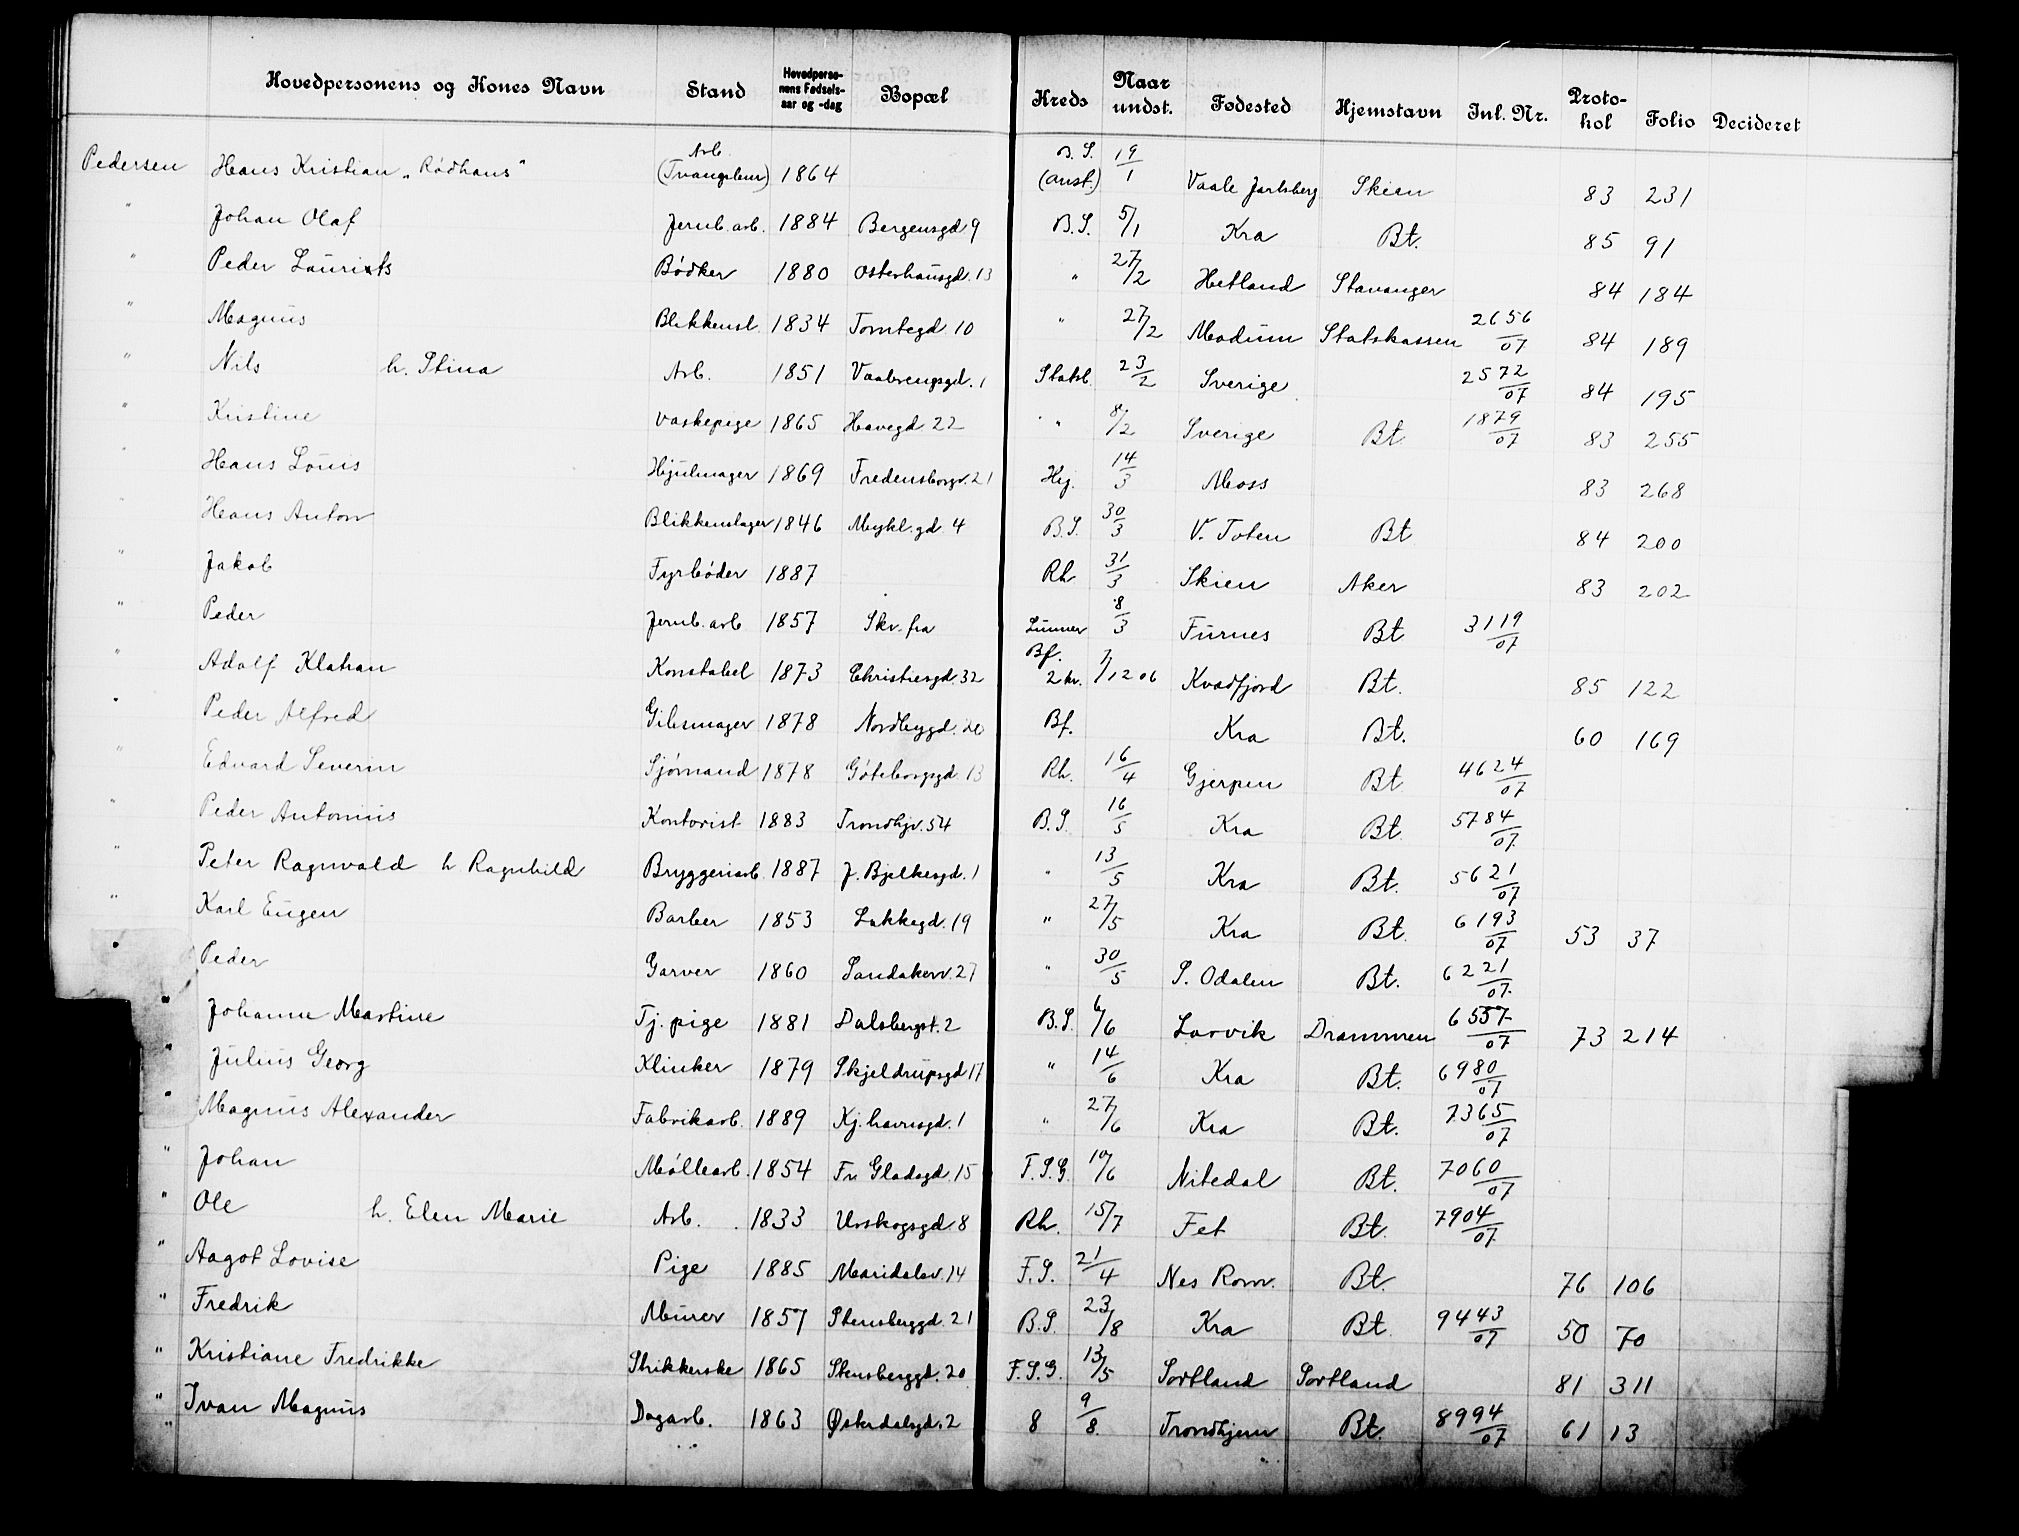 Hovedpersonens og Kones Navn Stand Hovedperso-nens Fødsels-aar og -dag Bopæl Kreds Naar undst. Fødested Hjemstavn Inl. Nr. Proto-kol Folio Decideret
Pedersen Hans Kristian „Rødhans" Arb. (Tvangslem) 1864 B.S. (Anst.) 19/1 Vaale Jarlsberg Skien 83 231
" Johan Olaf Jernb.arb. 1884 Bergensgd 9 B.S. 5/1 Kra Bt. 85 91
" Peder Laurits Bødker 1880 Osterhausgd. 13 " 27/2 Hetland Stavanger 84 184
" Magnus Blikkensl. 1834 Tomtegd 10 " 27/2 Modum Statskassen 2656/07 84 189
" Nils h. Stina Arb. 1851 Vaalerengsgd. 1 Statsb. 23/2 Sverige 2572/07 84 195
" Kristine Vaskepige 1865 Havegd 22 " 8/2 Sverige Bt 1879/07 83 255
Hans Louis Hjulmager 1869 Fredensborgv. 21 Hg. 14/3 Moss 83 268
" Hans Anton Blikkenslager 1846 Mykl.gd. 4 B.S. 30/3 V. Toten Bt 84 200
" Jakob Fyrbøder 1887 Rh 31/3 Skien Aker 83 202
" Peder Jernb.arb 1857 Skr. fra Lunner 8/3 Furnes Bt 3119/07
" Adolf Klahan Konstabel 1873 Christiesgd. 32 Bf. 2 kr. 7/12 06 Kvadfjord Bt. 85 122
" Peder Alfred Gibsmager 1878 Nordbygd. 20 Bf. Kra Bt. 60 169
" Edvard Severin Sjømand 1878 Göteborgsgd 13 Rh. 16/4 Gjerpen Bt 4624/07
" Peder Antonius Kontorist 1883 Trondhjv. 54 B.S. 16/5 Kra Bt. 5784/07
" Peter Ragnvald h Ragnhild Bryggeriarb. 1887 J. Bjelkesgd. 1 " 13/5 Kra Bt. 5621/07
" Karl Eugen Barber 1853 Lakkegd. 19 " 27/5 Kra Bt. 6193/07 53 37
" Peder Garver 1860 Sandakerv. 27 " 30/5 S. Odalen Bt. 6221/07.
" Johanne Martine Tj. pige 1881 Dalsbergst. 2 B.S. 6/6 Larvik Drammen 6557/07 73 214
" Julius Georg Klinker 1879 Skjeldrupsgd 17 " 14/6 Kra Bt. 6980/07
" Magnus Alexander Fabrikarb. 1889 Kj.havnsgd. 1 " 27/6 Kra Bt. 7365/07
" Johan Møllearb. 1854 Fr. Gladsgd. 15 F.S.G 10/6 Nitedal Bt. 7060/07
" Ole h. Elen Marie Arb. 1833 Urskogsgd. 8 Rh. 15/7 Fet Bt. 7904/07.
" Aagot Lovise Pige 1885 Maridalsv. 14 F.S. 21/4 Nes Rom. Bt. 76 106
" Fredrik Murer 1857 Stensberggd. 21 B.S. 23/8 Kra Bt. 9443/07 50 70
" Kristiane Fredrikke Strikkerske 1865 Stensberggd. 20 F.S.G. 13/5 Sortland Sortland 81 311
" Ivan Magnus Dagarb. 1863 Østerdalsgd. 2 8 9/8. Trondhjem Bt. 8994/07 61 13
"